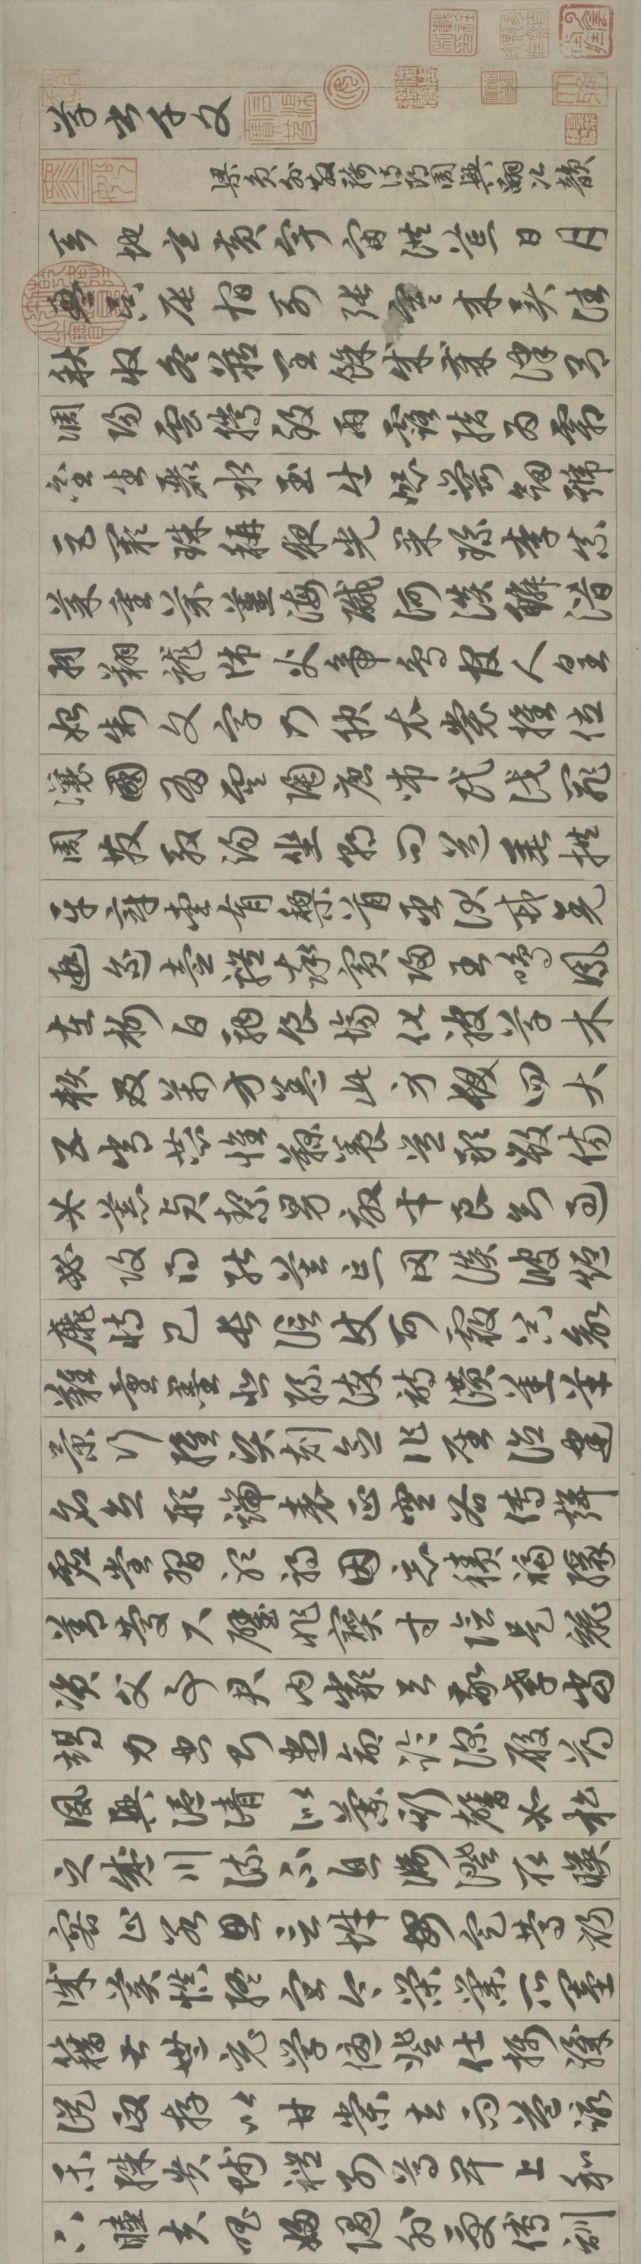 草書千文
梁員外散騎侍郎周興嗣次韻
天地玄黃宇宙洪荒日月
盈昃辰宿列張寒來暑往
秋收冬藏閏餘成歲律呂
調陽雲騰致雨露結為霜
金生麗水玉出崑崗劍號
巨闕珠稱夜光菓珍李柰
菜重芥薑海鹹河淡鱗潛
羽翔龍師火帝鳥官人皇
始制文字乃服衣裳推位
讓國有虞陶唐弔民伐罪
周發殷湯坐朝問道垂拱
平章愛育黎首臣伏戎羌
遐邇壹體率賓歸王鳴鳳
在樹白駒食場化被草木
賴及萬方蓋此身髮四大
五常恭惟鞠養豈敢毀傷
女慕貞潔男效才良知過
必改得能莫忘罔談彼短
靡恃己長信使可覆器欲
難量墨悲絲染詩讚羔羊
景行維賢剋念作聖德建
名立形端表正空谷傳聲
虛堂習聽禍因惡積福緣
善慶尺璧非寶寸陰是競
資父事君曰嚴與敬孝當
竭力忠則盡命臨深履薄
夙興溫清似蘭斯馨如松
之盛川流不息淵澄取暎
容止若思言辭安定篤初
誠美慎終宜令榮業所基
籍甚無竟學優登仕攝職
從政存以甘棠去而益詠
樂殊貴賤禮別尊卑上和
下睦夫唱婦隨外受傅訓